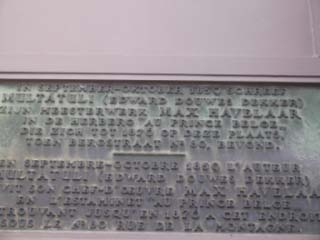 IN SEPTEMBER-OKTOBER 1859 SCHREEF
MULTATULI (EDWARD DOUWES DEKKER)
ZIJN MEESTERWERK MAX HAVELAAR
IN DE HERBERG AU PRINCE BELGE
DIE ZICH TOT 1876 OP DEZE PLAATS,
DEN BERGSTRAAT Nr 80, BEVOND.
EN SEPTEMBRE - OCTOBRE 1859 L'AUTEUR
MULTATULI (EDWARD DOUWES DEKKER)
SON CHEF-D'OEUVRE MAX HAVELAAR
EN L'ESTAMINET AU PRINCE BELGE
TROUVANT JUSQU'EN 1876 A CET ENDROIT
SOUS LE No 80 RUE DE LA MONTAGNE